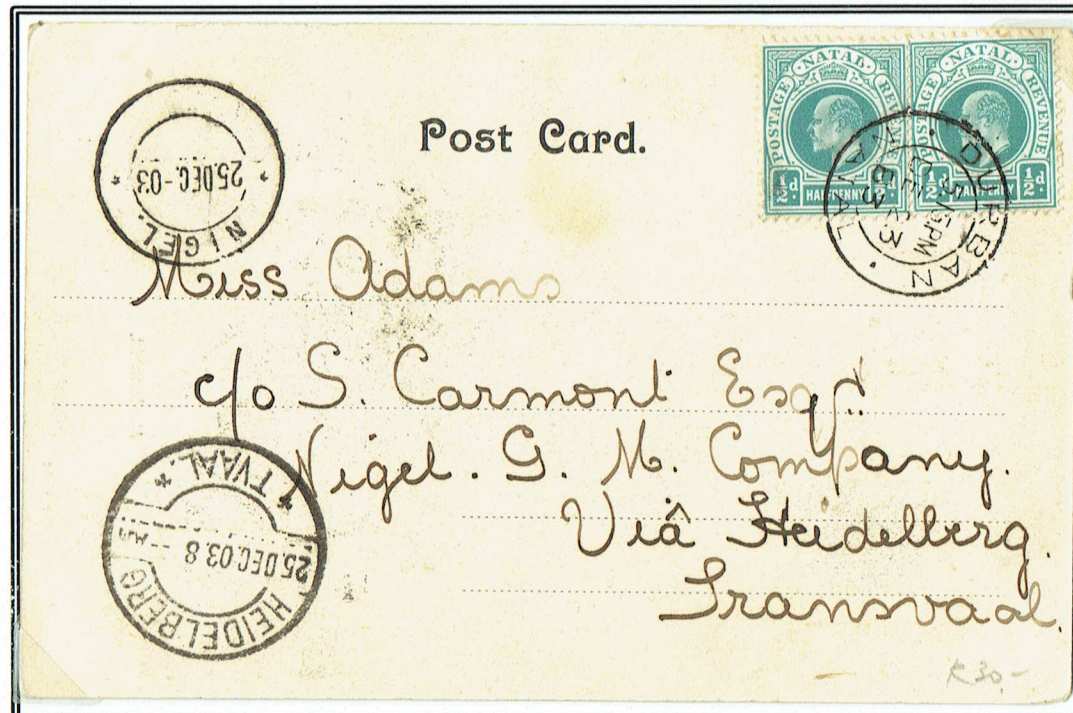 Post Card.
POSTAGE NATAL REVENUE
½d HALFPENNY ½d
POSTAGE NATAL REVENUE
½d HALFPENNY ½d
DURBAN
NATAL
NIGEL
25 DEC-03
Miss Adams
c/o S. Carmont Esqr.
Nigel. G. M. Company.
Viâ Heidelberg.
Transvaal.
HEIDELBERG
TVAAL.
25 DEC.03 8
R30,-